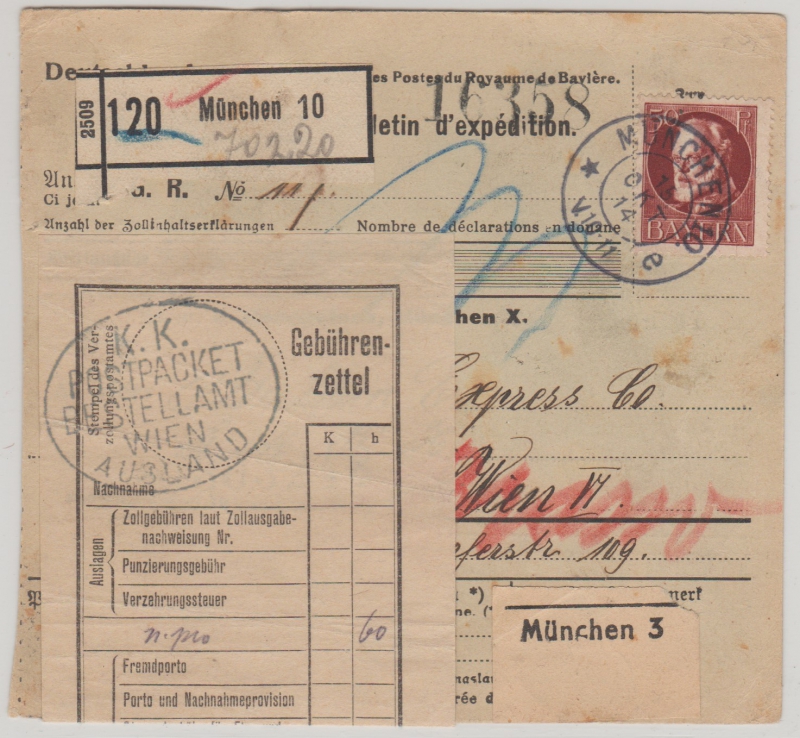 es Postes du Royaume de Bavière.
2509
120 München 10
702,20
16358
letin d'expédition.
G. R. No
Ci j
Anzahl der Zollinhaltserklärungen
Nombre de déclarations en douane
50 Pf
BAYERN
MÜNCHEN
OKT.
14
V 10-11
e
hen X.
Express Co.
Wien VI.
ferstr. 109.
Stempel des Ver-
zollungspostamtes
K. K.
POSTPACKET
BESTELLAMT
WIEN
AUSLAND
Gebühren-
zettel
K h
Nachnahme
Auslagen
Zollgebühren laut Zollausgabe-
nachweisung Nr.
Punzierungsgebühr
Verzehrungssteuer
60
Fremdporto
Porto und Nachnahmeprovision
*)
merk
ne. (*
München 3
naslan
rée d